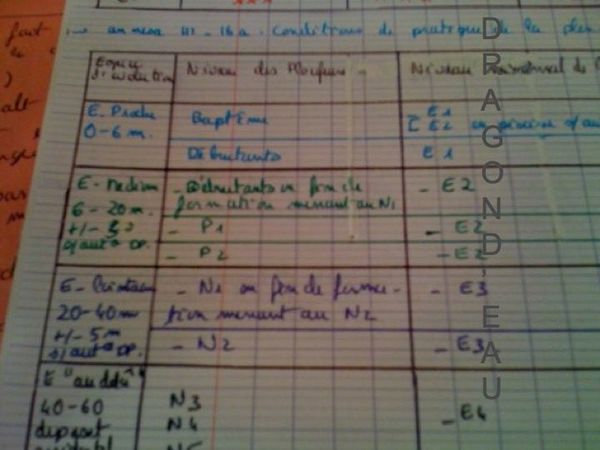 → annexe III-16a. Conditions de pratique de la plon
Espace d'évolution
Niveau des Plongeurs
Niveau minimal de l'
E. Proche
0-6 m.
Baptême
E1
E2 en piscine o/au
Débutants
E1
E-Médian
6-20m.
+/- 5
o/aut° DP.
- Débutants en fin de
formation menant au N1
- E2
- P1
- E2
- P2
- E2
E- Lointain
20-40m
+/- 5m
o/aut° DP.
- N1 en fin de forma-
tion menant au N2
- E3
- N2
- E3
E "au delà"
40-60
N3
N4
N5
- E4
DRAGOND-EAU